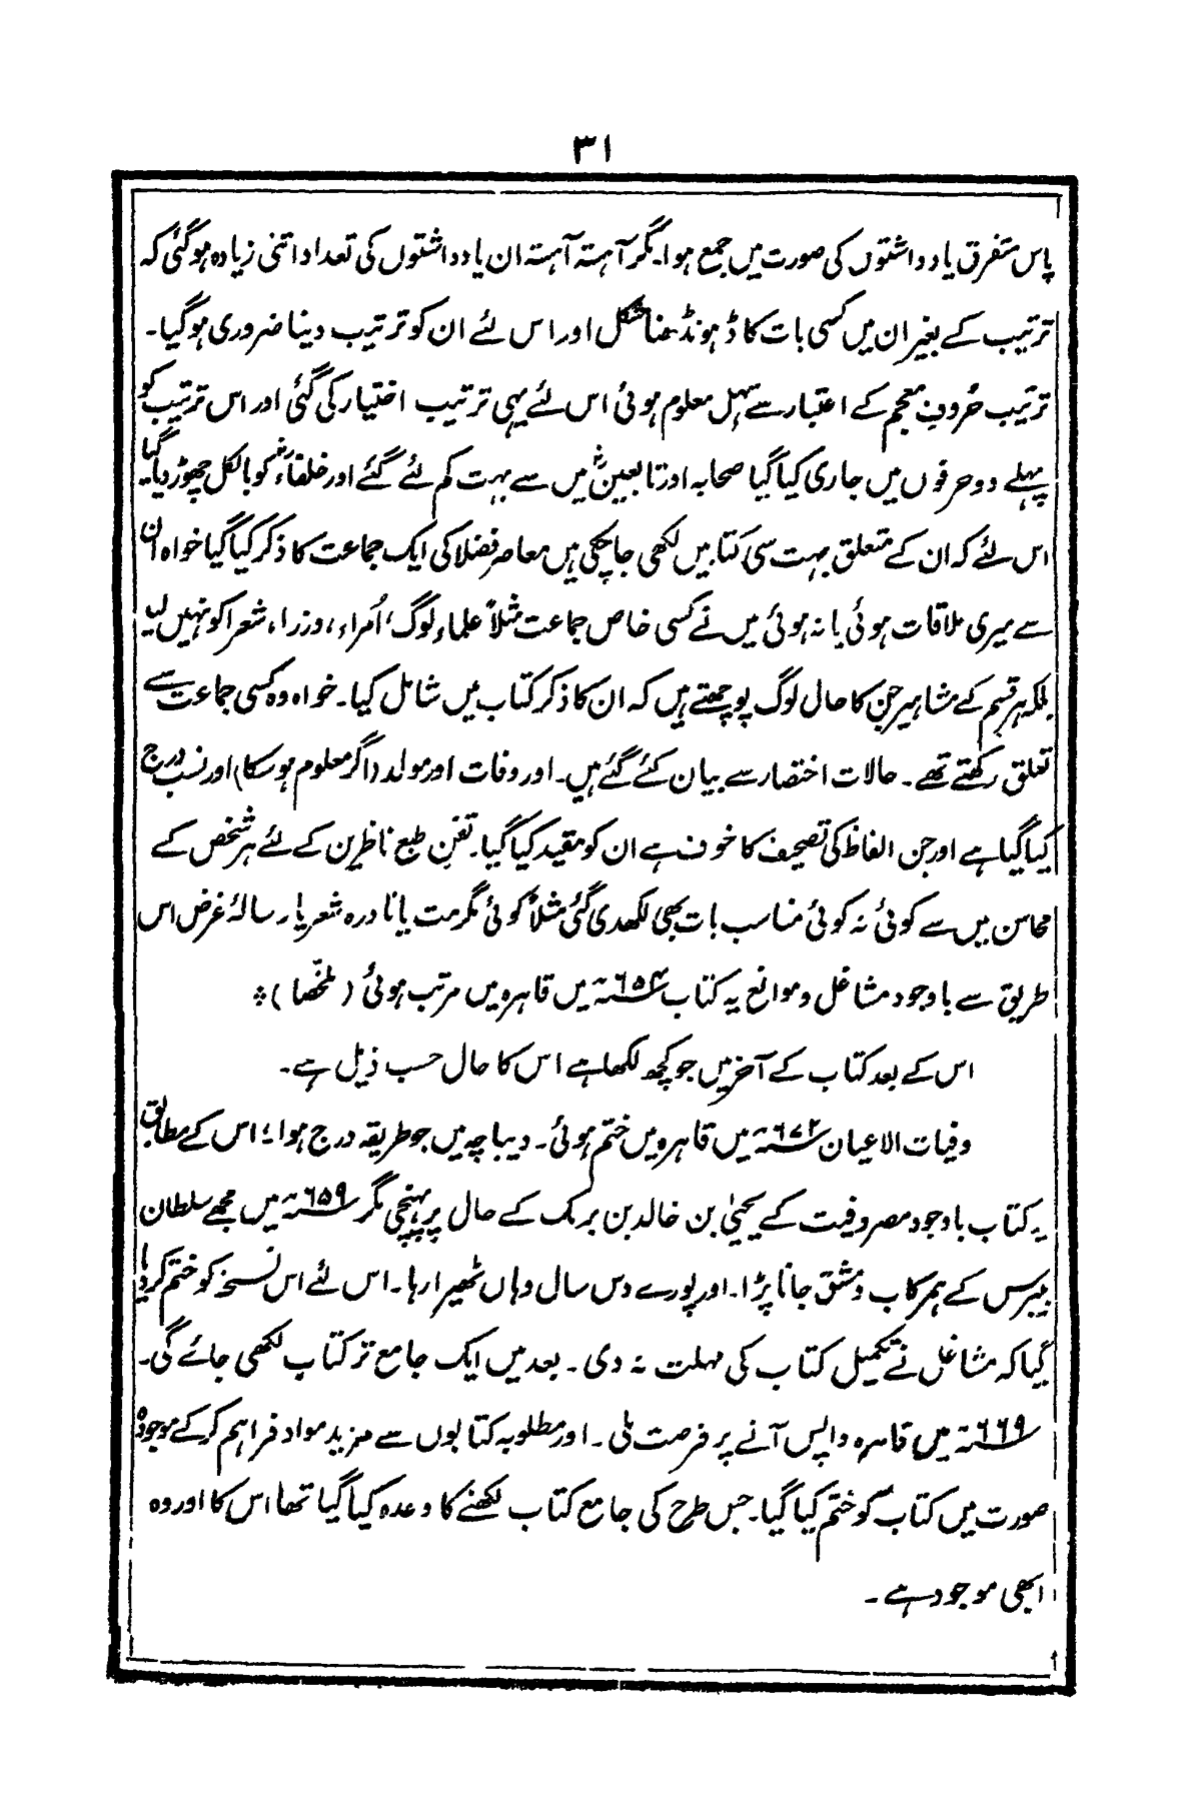 ۳۱
پاس متفرق یادداشتوں کی صورت میں جمع ہوا۔ مگر آہستہ آہستہ ان یادداشتوں کی تعداد اتنی زیادہ ہو گئی کہ
ترتیب کے بغیر ان میں کسی بات کا ڈہونڈھنا مشکل اور اس لئے ان کو ترتیب دینا ضروری ہو گیا۔
ترتیب حُروفِ معجم کے اعتبار سے سہل معلوم ہوئی اس لئے یہی ترتیب اختیار کی گئی اور اس ترتیب کو
پہلے دو حرفوں میں جاری کیا گیا صحابہ اور تابعینؓ میں سے بہت کم لئے گئے اور خلفاءؓ کو بالکل چھوڑ دیا گیا۔
اس لئے کہ ان کے متعلق بہت سی کتابیں لکھی جا چکی ہیں معاصر فضلا کی ایک جماعت کا ذکر کیا گیا خواہ ان
سے میری ملاقات ہوئی یا نہ ہوئی میں نے کسی خاص جماعت مثلاً علماء لوگ، اُمراء، وزرا، شعرا کو نہیں لیا
بلکہ ہر قسم کے مشاہیر جن کا حال لوگ پوچھتے ہیں کہ ان کا ذکر کتاب میں شامل کیا۔ خواہ وہ کسی جماعت سے
تعلق رکھتے تھے۔ حالات اختصار سے بیان کئے گئے ہیں۔ اور وفات اور مولد (اگر معلوم ہو سکا) اور نسب درج
کیا گیا ہے اور جن الفاظ کی تصحیف کا خوف ہے ان کو مقید کیا گیا۔ تفننِ طبع ناظرین کے لئے ہر شخص کے
محاسن میں سے کوئی نہ کوئی مناسب بات بھی لکھدی گئی مثلاً کوئی مکرمت یا نادرہ شعر یا رسالۂ غرض اس
طریق سے باوجود مشاغل و موانع یہ کتاب ۶۵۴ھ میں قاہرہ میں مرتب ہوئی (ملخّصا) ⁂
اس کے بعد کتاب کے آخر میں جو کچھ لکھا ہے اس کا حال حسب ذیل ہے۔
وفیات الاعیان ۶۷۲ھ میں قاہرہ میں ختم ہوئی۔ دیباچہ میں جو طریقہ درج ہوا ؛ اس کے مطابق
یہ کتاب باوجود مصروفیت کے یحییٰ بن خالد بن برمک کے حال پر پہنچی مگر ۶۵۹ھ میں مجھے سلطان
بیبرس کے ہمرکاب دمشق جانا پڑا۔ اور پورے دس سال وہاں ٹھیرا رہا۔ اس لئے اس نسخہ کو ختم کر دیا
گیا کہ مشاغل نے تکمیل کتاب کی مہلت نہ دی۔ بعد میں ایک جامع تر کتاب لکھی جائے گی۔
۶۶۹ھ میں قاہرہ واپس آنے پر فرصت ملی۔ اور مطلوبہ کتابوں سے مزید مواد فراہم کر کے موجودہ
صورت میں کتاب کو ختم کیا گیا۔ جس طرح کی جامع کتاب لکھنے کا وعدہ کیا گیا تھا اس کا اور وہ
ابھی موجود ہے۔